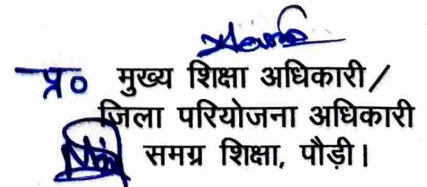 प्र० मुख्य शिक्षा अधिकारी/
जिला परियोजना अधिकारी
समग्र शिक्षा, पौड़ी।